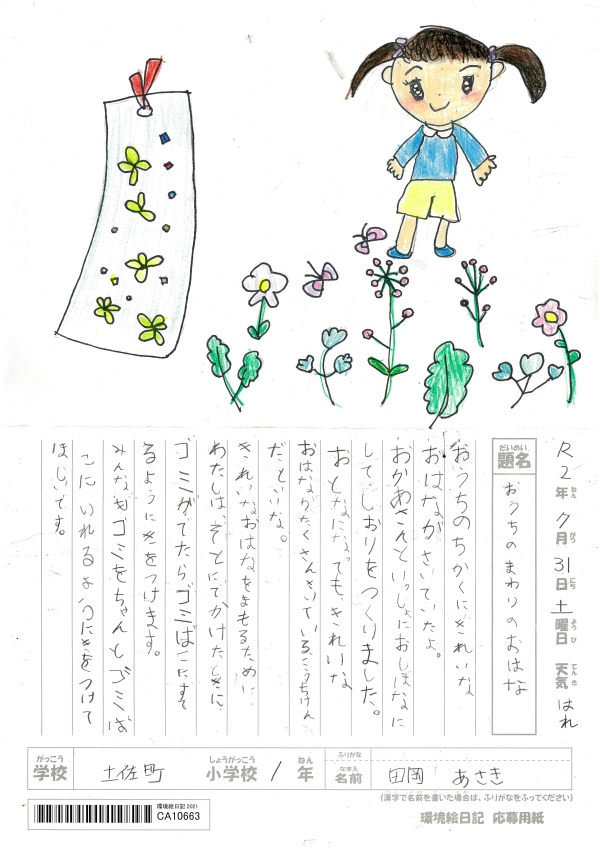 R2年7月31日土曜日 天気 はれ
ねん がつ にち ようび てんき
だいめい
題名
おうちのまわりのおはな
おうちのちかくにきれいな
おはながさいていたよ。
おかあさんといっしょにおしばなに
して、しおりをつくりました。
おとなになっても、きれいな
おはながたくさんさいている
だといいな。
きれいなおはなをまもるために、
わたしは、そとにでかけたときに
ゴミがでたらゴミばこにすて
るようにきをつけます。
みんなもゴミをちゃんとゴミば
こにいれるようにきをつけて
ほしいです。
がっこう
学校
土佐町
しょうがっこう
小学校
1
ねん
年
ふりがな
なまえ
名前
田岡 あさき
(漢字で名前を書いた場合は、ふりがなをふってください)
環境絵日記 2021
CA10663
環境絵日記 応募用紙